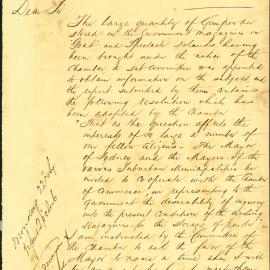 Dear Sir
The large quantity of Gunpowder
stored in the Government magazines on
Goat and Spectacle Islands having
been brought under the notice of the
Chamber a Sub-committee was appointed
to obtain information on the subject and
the report submitted by them contains
the following resolution which has
been adopted by the Chamber
"That as the question affects the
interests of so large a number of
our fellow Citizens. The Mayor
of Sydney and the Mayors of the
various Suburban Municipalities be
invited to co-operate with the Chamber
of Commerce, in representing to the
Government the desirability of inquiry
into the present conditions of the existing
Magazines for the Storage of Powder
I am instructed by the Committee of
the Chamber to ask the favor of the
Mayor to name a time when it will
Monday 22nd